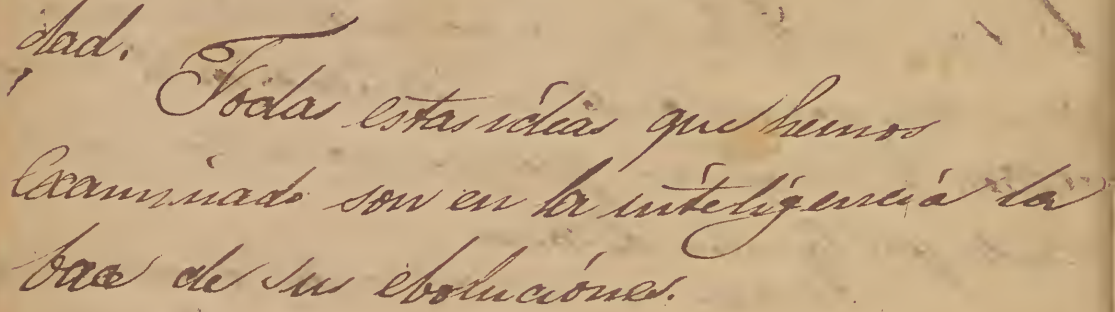 dad.
Todas estas idéas que hemos
Examinado son en la inteligencia la
bace de sus eboluciónes.